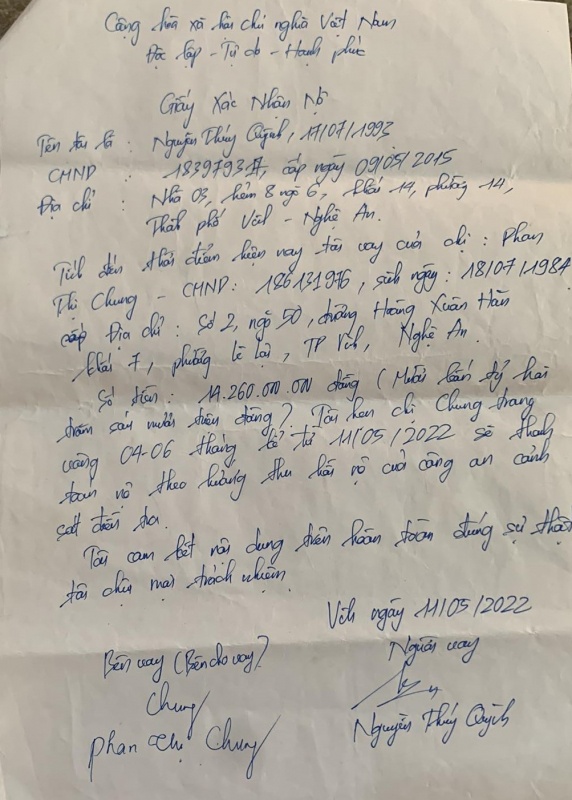 Cộng hòa xã hội chủ nghĩa Việt Nam
Độc lập - Tự do - Hạnh phúc
Giấy Xác Nhận Nợ
Tên tôi là : Nguyễn Thúy Quỳnh, 17/07/1993
CMND : cấp ngày 09/05/2015
Địa chỉ : Nhà 03, hẻm 8 ngõ 6, khối 14, phường 14,
Thành phố Vinh - Nghệ An.
Tính đến thời điểm hiện nay tôi vay của chị : Phan
Thị Chung - CMND: 186131976, sinh ngày: 18/07/1984
Địa chỉ : Số 2, ngõ 50, đường Hoàng Xuân Hãn
Khối 7, phường Lê Lợi, TP Vinh, Nghệ An.
Số tiền : 14.260.000.000 đồng (Mười bốn tỷ hai
trăm sáu mươi triệu đồng). Tôi hẹn chị Chung trong
vòng 04-06 tháng kể từ 11/05/2022 sẽ thanh
toán nợ theo hướng thu hồi nợ của công an cảnh
sát điều tra.
Tôi cam kết nội dung trên hoàn toàn đúng sự thật
tôi chịu mọi trách nhiệm
Vinh ngày 11/05/2022
Bên vay (Bên cho vay)
Người vay
Chung
Phan Thị Chung
Nguyễn Thúy Quỳnh